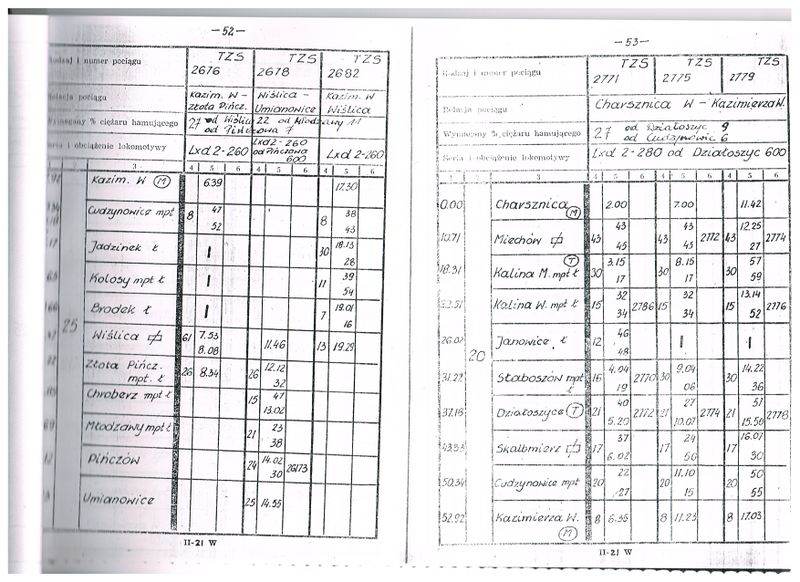 — 52 —
TZS TZS TZS
Rodzaj i numer pociągu 2676 2678 2682
Relacja pociągu Kazim. W – Złota Pińcz. Wiślica – Umianowice Kazim. W Wiślica
Wymagany % ciężaru hamującego 27 od Wiślic 22 od Młodzawy 11
od Pińczowa 7
Seria i obciążenie lokomotywy Lxd 2-260 Lxd2-260 od Pińczowa 600 Lxd 2-260
3 4 5 6 4 5 6 4 5 6
Kazim. W (M) 6.39 17.30
Cudzynowice mpt 8 47 52 8 38 43
Jadzinek ł | 30 18.13 28
Kolosy mpt ł | 11 39 54
Brodek ł | 7 19.01 16
25
Wiślica 61 7.53 8.08 11.46 13 19.29
Złota Pińcz. mpt. ł 26 8.34 26 12.12 32
Chroberz mpt ł 15 47 13.02
Młodzawy mpt ł 21 23 38
Pińczów 24 14.02 30 26173
Umianowice 25 14.55
II-21 W
— 53 —
TZS TZS TZS
Rodzaj i numer pociągu 2771 2775 2779
Relacja pociągu Charsznica W – Kazimierza W.
Wymagany % ciężaru hamującego 27 od Działoszyc 9
od Cudzynowic 6
Seria i obciążenie lokomotywy Lxd 2-280 od Działoszyc 600
1 2 3 4 5 6 4 5 6 4 5 6
0.00 Charsznica (M) 2.00 7.00 11.42
10.71 Miechów 43 43 45 43 43 45 2772 43 12.25 27 2774
18.31 Kalina M. mpt ł (T) 30 3.15 17 30 8.15 17 30 57 59
Kalina W. mpt ł 15 32 34 2786 15 32 34 15 13.14 52 2776
26.07 Janowice ł 12 46 48 | |
20
31.22 Słaboszów mpt ł 16 4.04 19 2770 30 9.04 06 30 14.22 36
37.16 Działoszyce (T) 21 40 5.20 2772 21 27 10.07 2774 21 51 15.50 2778
43.53 Skalbmierz 17 37 6.02 17 24 50 17 16.07 30
50.34 Cudzynowice mpt 20 22 27 20 11.10 15 20 50 55
52.92 Kazimierza W. (M) 8 6.35 8 11.23 8 17.03
II-21 W